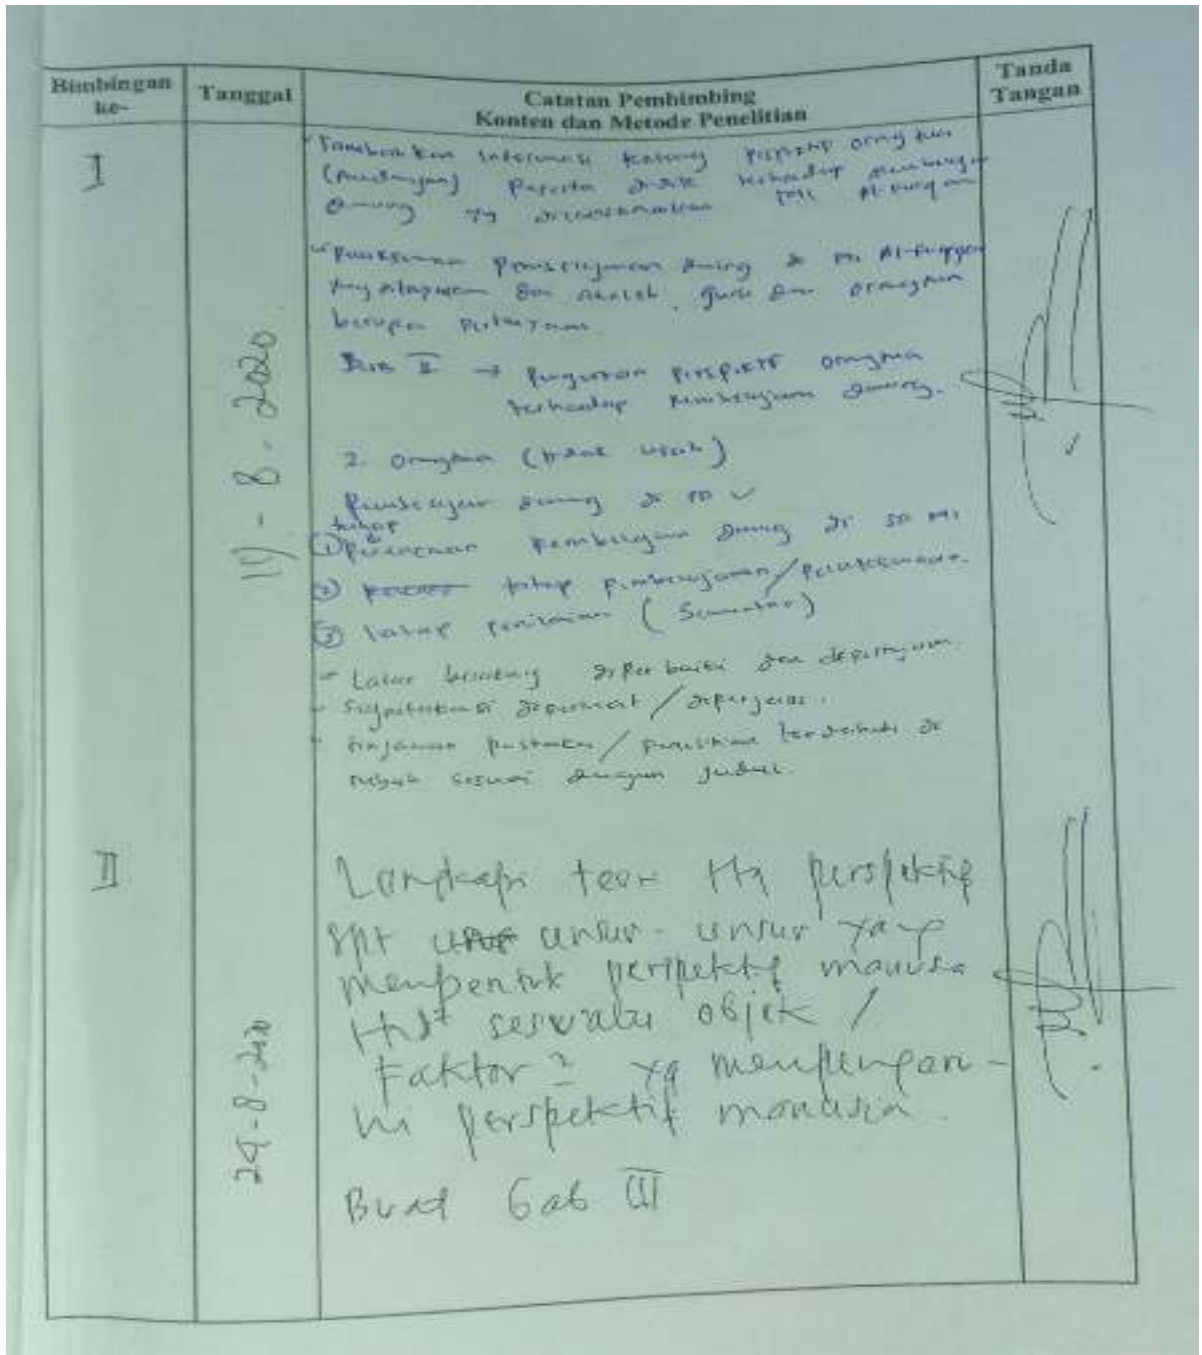 Bimbingan ke-
Tanggal
Catatan Pembimbing
Konten dan Metode Penelitian
Tanda Tangan
I
- 8 - 2020
Tambahkan informasi tentang perspektif orangtua
(pandangan) peserta didik terhadap
daring yg
pembelajaran daring di MI Al-Furqan
yang siapkan dari sekolah, guru dan orangtua
berupa pertanyaan.
Bab II → perspektif orangtua
terhadap pembelajaran daring.
2. Orangtua (tidak usah)
pembelajaran daring di MI ✓
tahap
① perencanaan pembelajaran daring di SD MI
② tahap pembelajaran/pelaksanaan.
③ tahap penilaian ( )
- Latar belakang diperbaiki dan dipertajam.
- /diperjelas.
- tinjauan pustaka/penelitian terdahulu di
sesuai dengan judul.
II
24-8-2020
Lengkapi teori ttg perspektif
spt unsur-unsur yang
membentuk perspektif manusia
thdp sesuatu objek /
Faktor2 yg mempengaru-
hi perspektif manusia.
Buat bab III